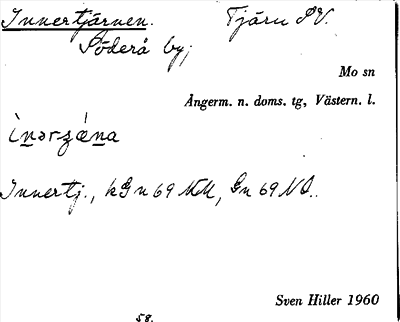 Innertjärnen. Tjärn SV.
Söderå by,
Mo sn
Ångerm. n. doms. tg, Västern. l.
Innertj., kGn69
Sven Hiller 1960
58.